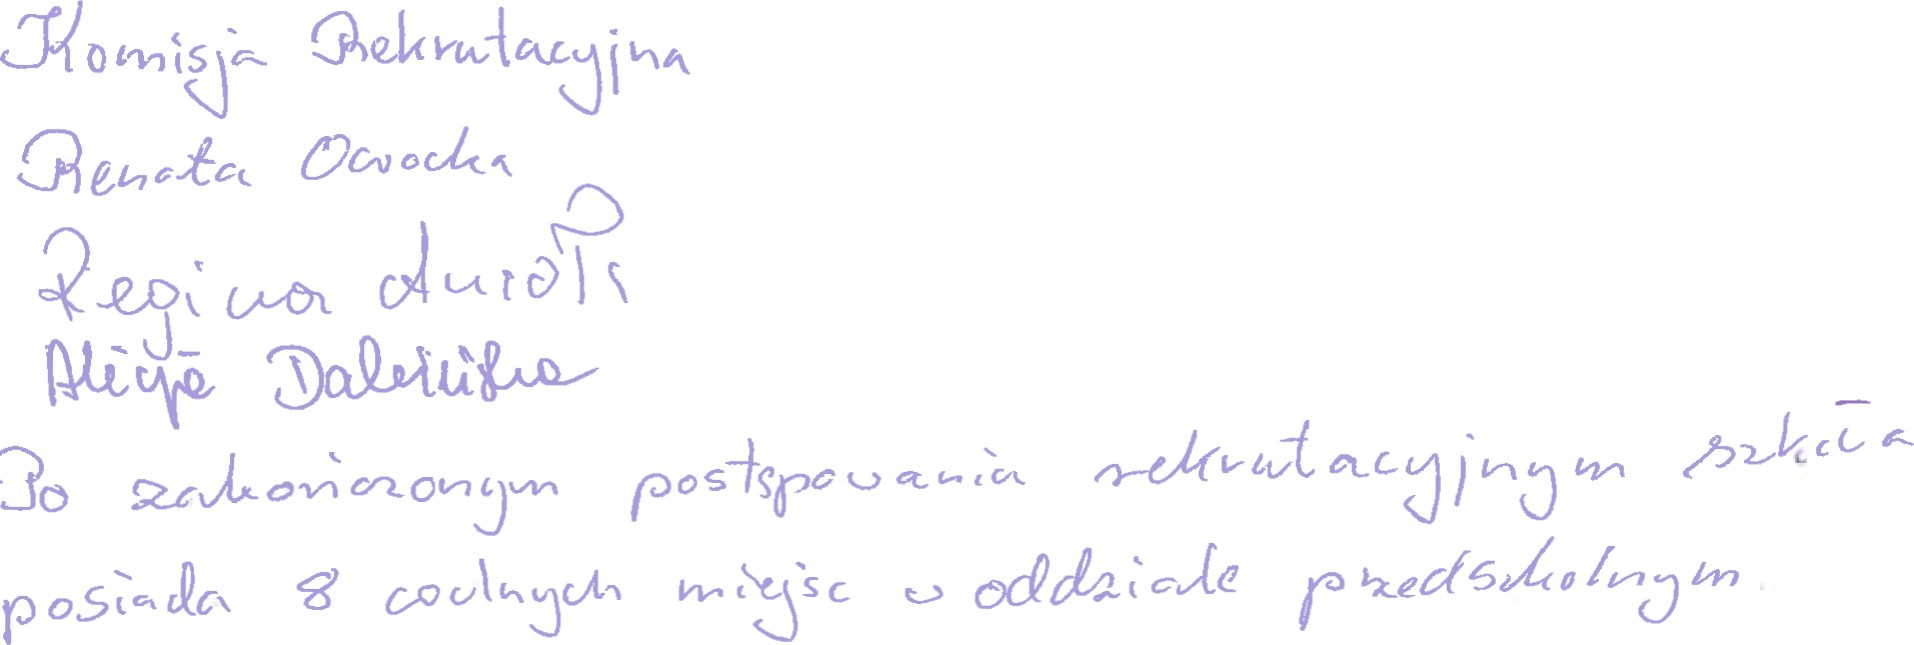 Komisja Rekrutacyjna
Renata
Regina
Alicja
Po zakończonym postępowania rekrutacyjnym szkoła
posiada 8 wolnych miejsc w oddziale przedszkolnym